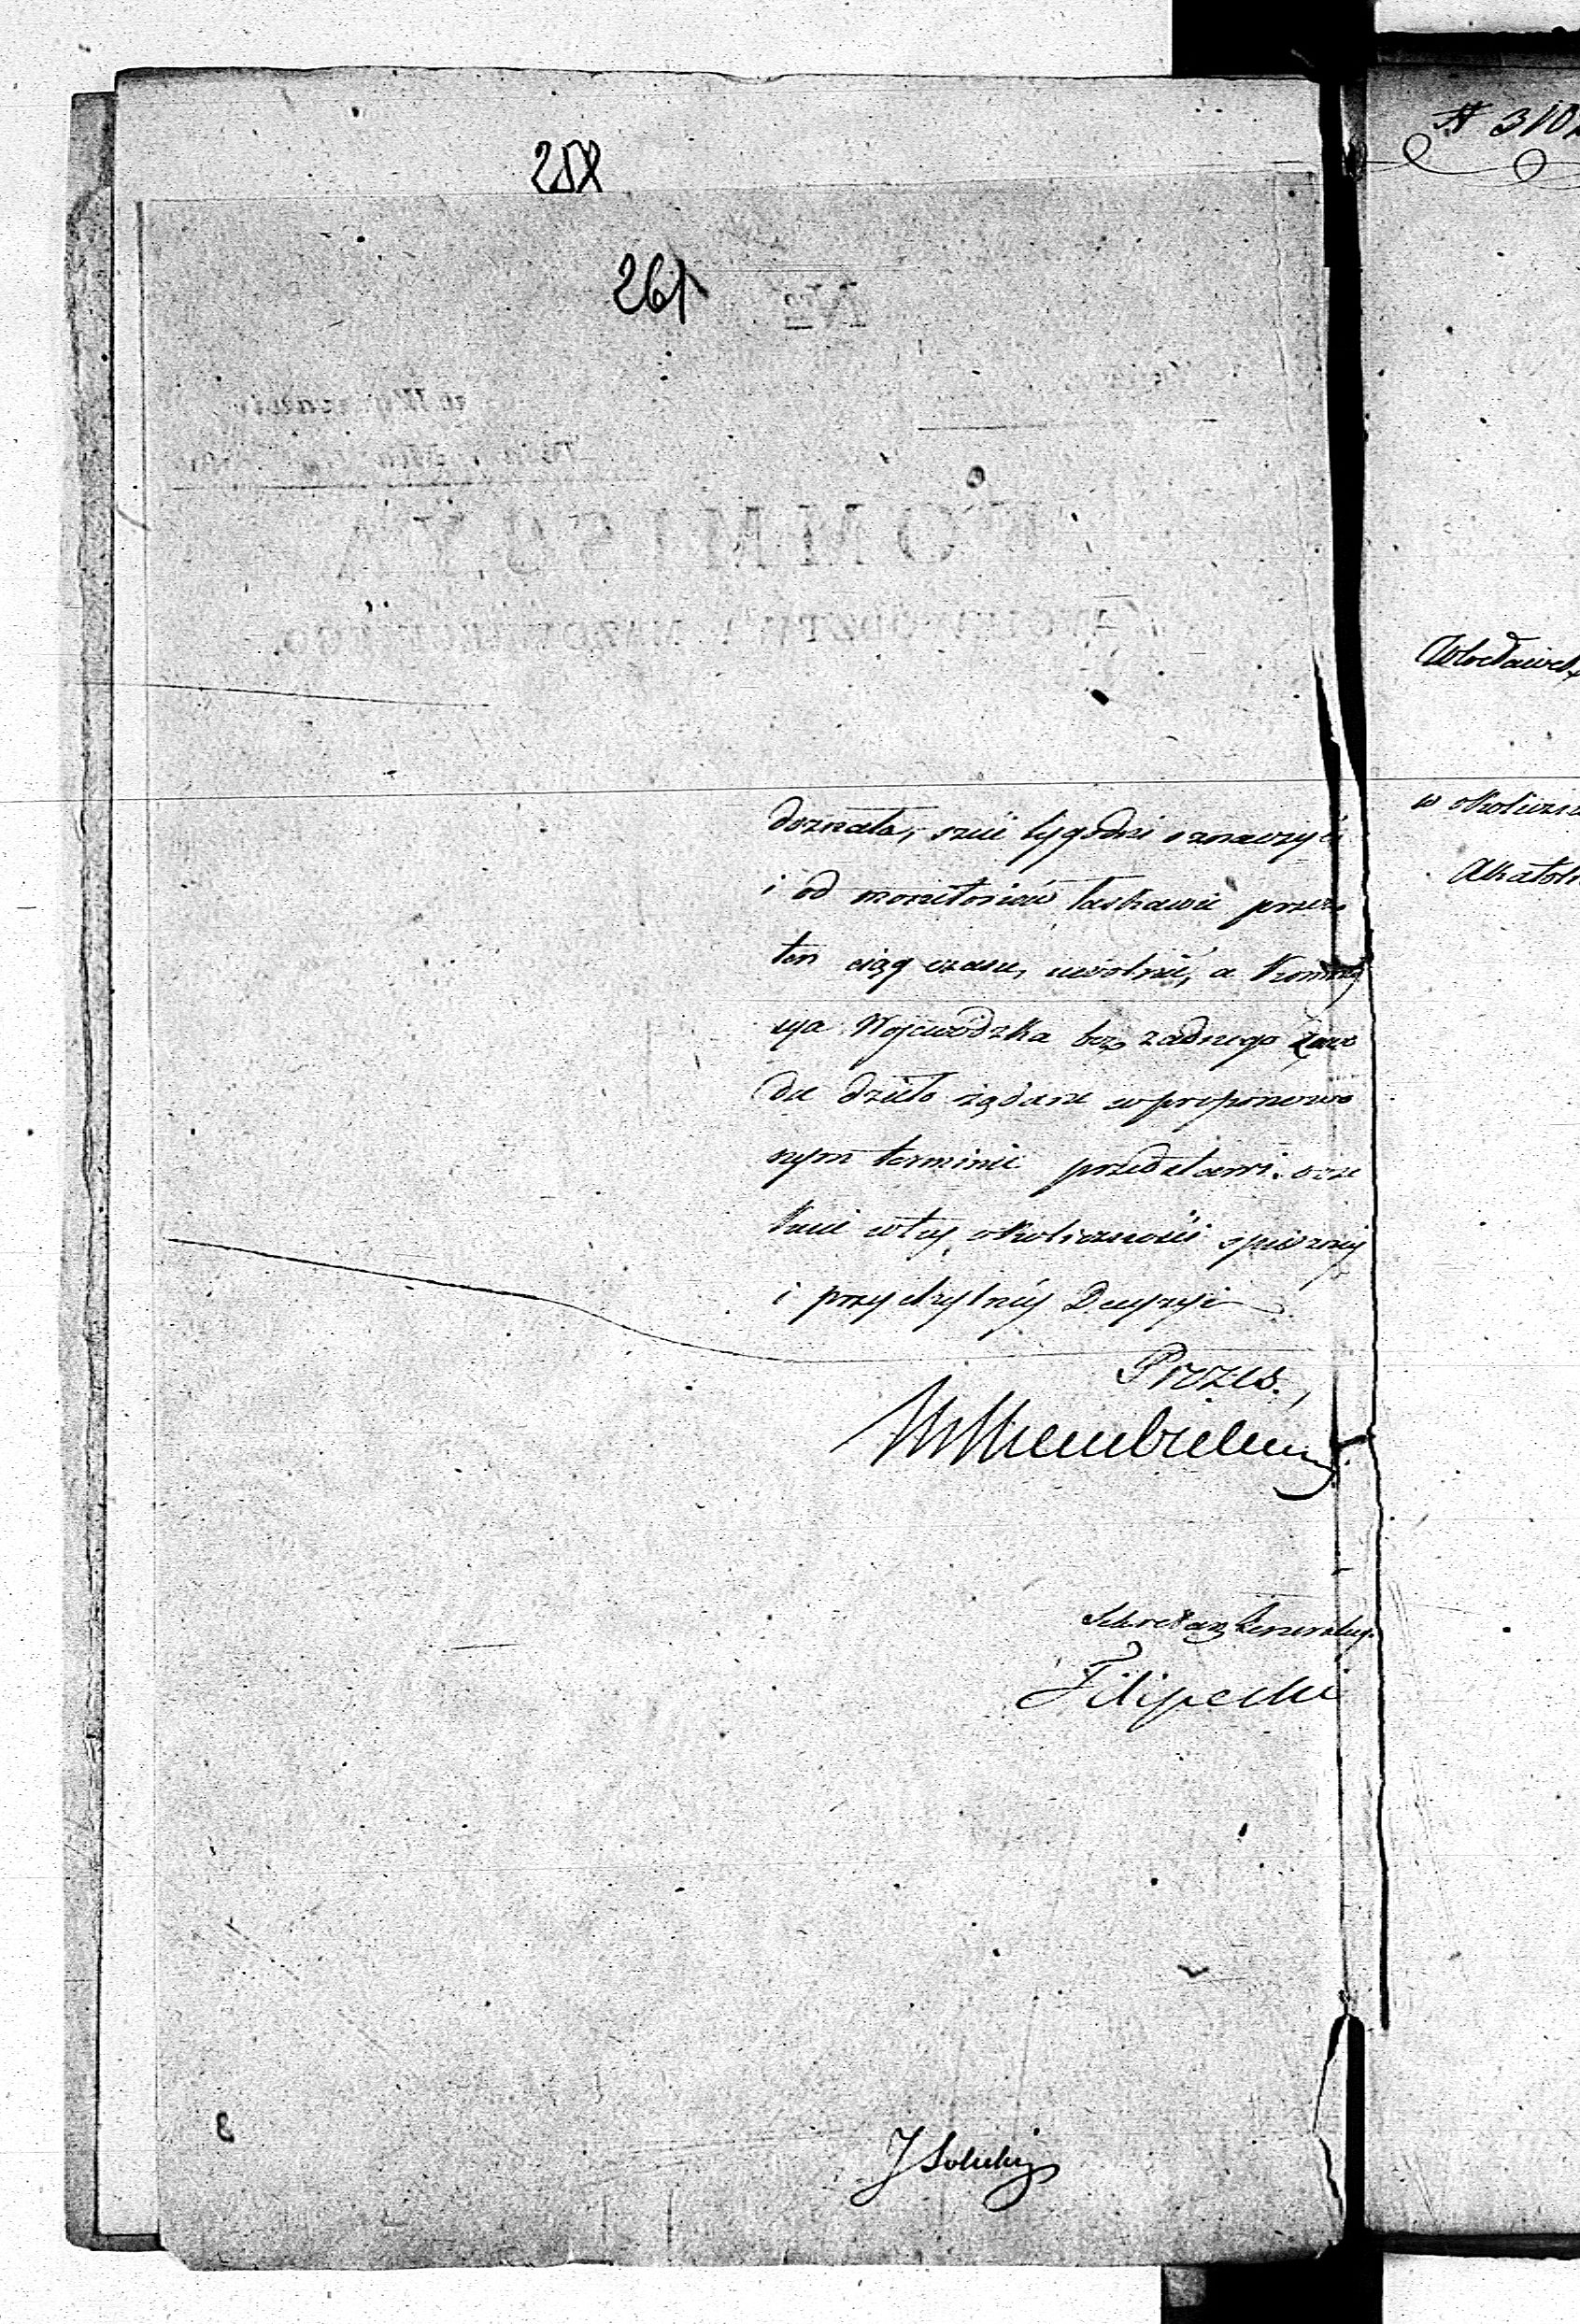 258
261
doznała, sześć tygodni oznaczyć
i od monitoriów łaskawie przez
ten ciąg czasu, uwolnić, a Kommis
sya Wojewódzka bez żadnego zawo
du dzieło żądane w proponowa
nym terminie przedstawi. ocze
kuie w tey okoliczności spieszney
i przychylney Decyzyi
Prezes,
Sekretarz Generalny.
Filipecki
N 310
Włocławek
w okoliczn
Akatol